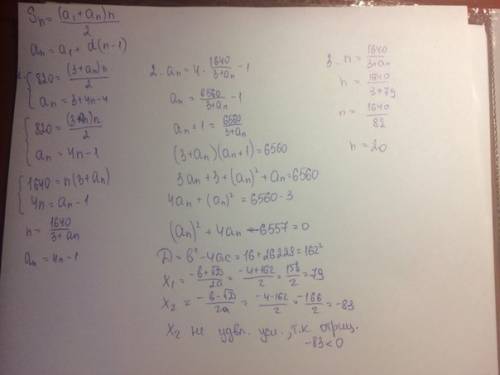 Sn = (a1 + an)n / 2
an = a1 + d(n-1)
820 = (3+an)n / 2
an = 3+4n-4
820 = (3+an)n / 2
an = 4n-1
1640 = n(3+an)
4n = an - 1
n = 1640 / 3+an
an = 4n-1
2. an = 4 · 1640 / 3+an - 1
an = 6560 / 3+an - 1
an + 1 = 6560 / 3+an
(3+an)(an+1) = 6560
3an + 3 + (an)² + an = 6560
4an + (an)² = 6560 - 3
(an)² + 4an - 6557 = 0
D = b² - 4ac = 16 + 26228 = 162²
x1 = -b+√D / 2a = -4+162 / 2 = 158 / 2 = 79
x2 = -b-√D / 2a = -4-162 / 2 = -166 / 2 = -83
x2 не удвл. усл., т.к отриц.
-83 < 0
3. n = 1640 / 3+an
n = 1640 / 3+79
n = 1640 / 82
n = 20